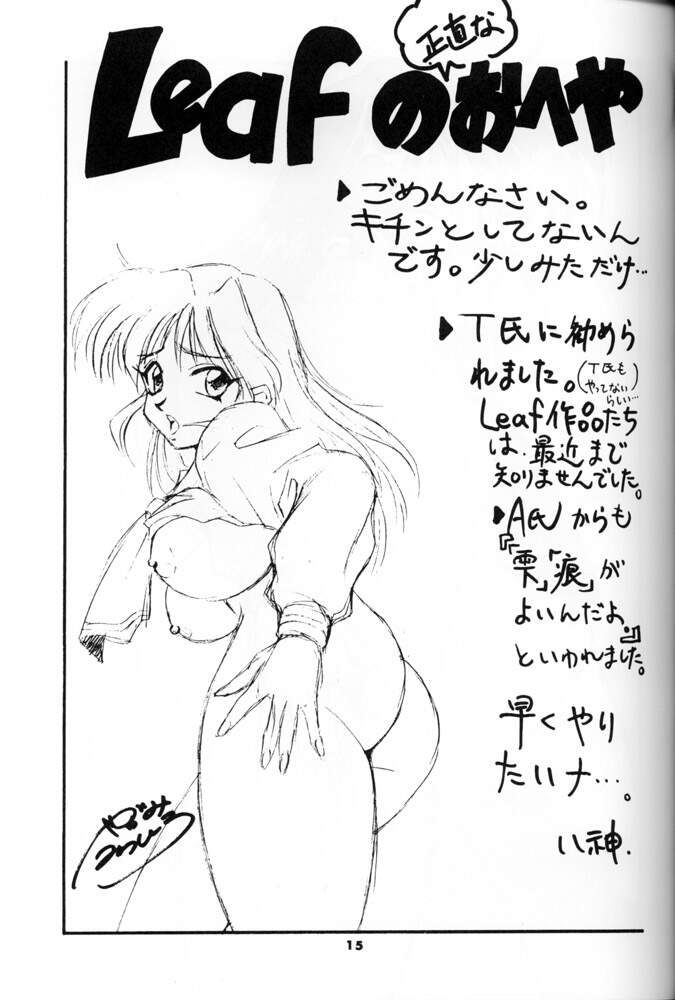 正直な
Leafのおへや
▶ごめんなさい。
キチンとしてないん
です。少しみただけ…
▶T氏に勧めら
れました。(T氏も
やってない
らしい…)
Leaf作品たち
は、最近まで
知りませんでした。
▶A氏からも
『雫」「痕」が
よいんだよ。』
といわれました。
早くやり
たいナ…。
八神.
15